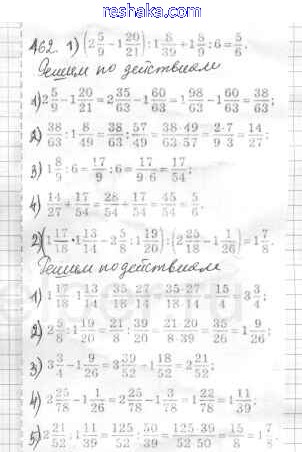 462. 1) (2 5/9 - 1 20/21) : 1 8/39 + 1 8/9 : 6 = 5/6.
Решим по действиям
1) 2 5/9 - 1 20/21 = 2 35/63 - 1 60/63 = 1 98/63 - 1 60/63 = 38/63;
2) 38/63 : 1 8/49 = 38/63 : 57/49 = 38·49/63·57 = 2·7/9·3 = 14/27;
3) 1 8/9 : 6 = 17/9 : 6 = 17/9·6 = 17/54;
4) 14/27 + 17/54 = 28/54 + 17/54 = 45/54 = 5/6.
2) (1 17/18 · 1 13/14 - 2 5/8 : 1 19/20) : (2 25/78 - 1 1/26) = 1 7/8.
Решим по действиям
1) 1 17/18 · 1 13/14 = 35/18 · 27/14 = 35·27/18·14 = 15/4 = 3 3/4;
2) 2 5/8 : 1 19/20 = 21/8 : 39/20 = 21·20/8·39 = 35/26 = 1 9/26;
3) 3 3/4 - 1 9/26 = 3 39/52 - 1 18/52 = 2 21/52;
4) 2 25/78 - 1 1/26 = 2 25/78 - 1 3/78 = 1 22/78 = 1 11/39;
5) 2 21/52 : 1 11/39 = 125/52 : 50/39 = 125·39/52·50 = 15/8 = 1 7/8.